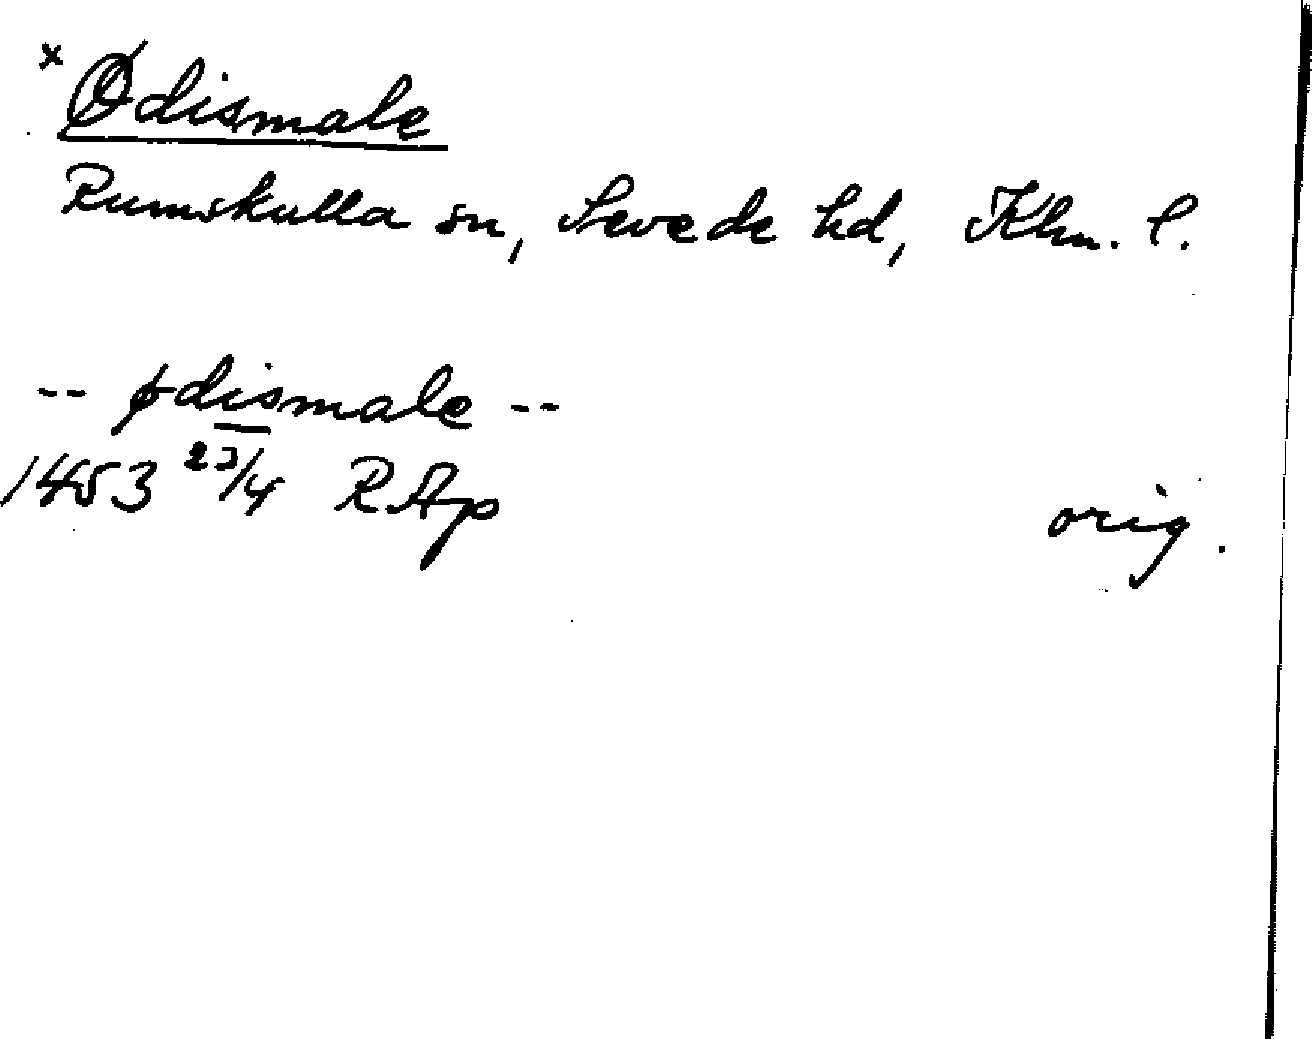 x Ødismale
Rumskulla sn, Sevede hd, Klm. l.
-- ødismale --
1453 23/4 RAp orig.